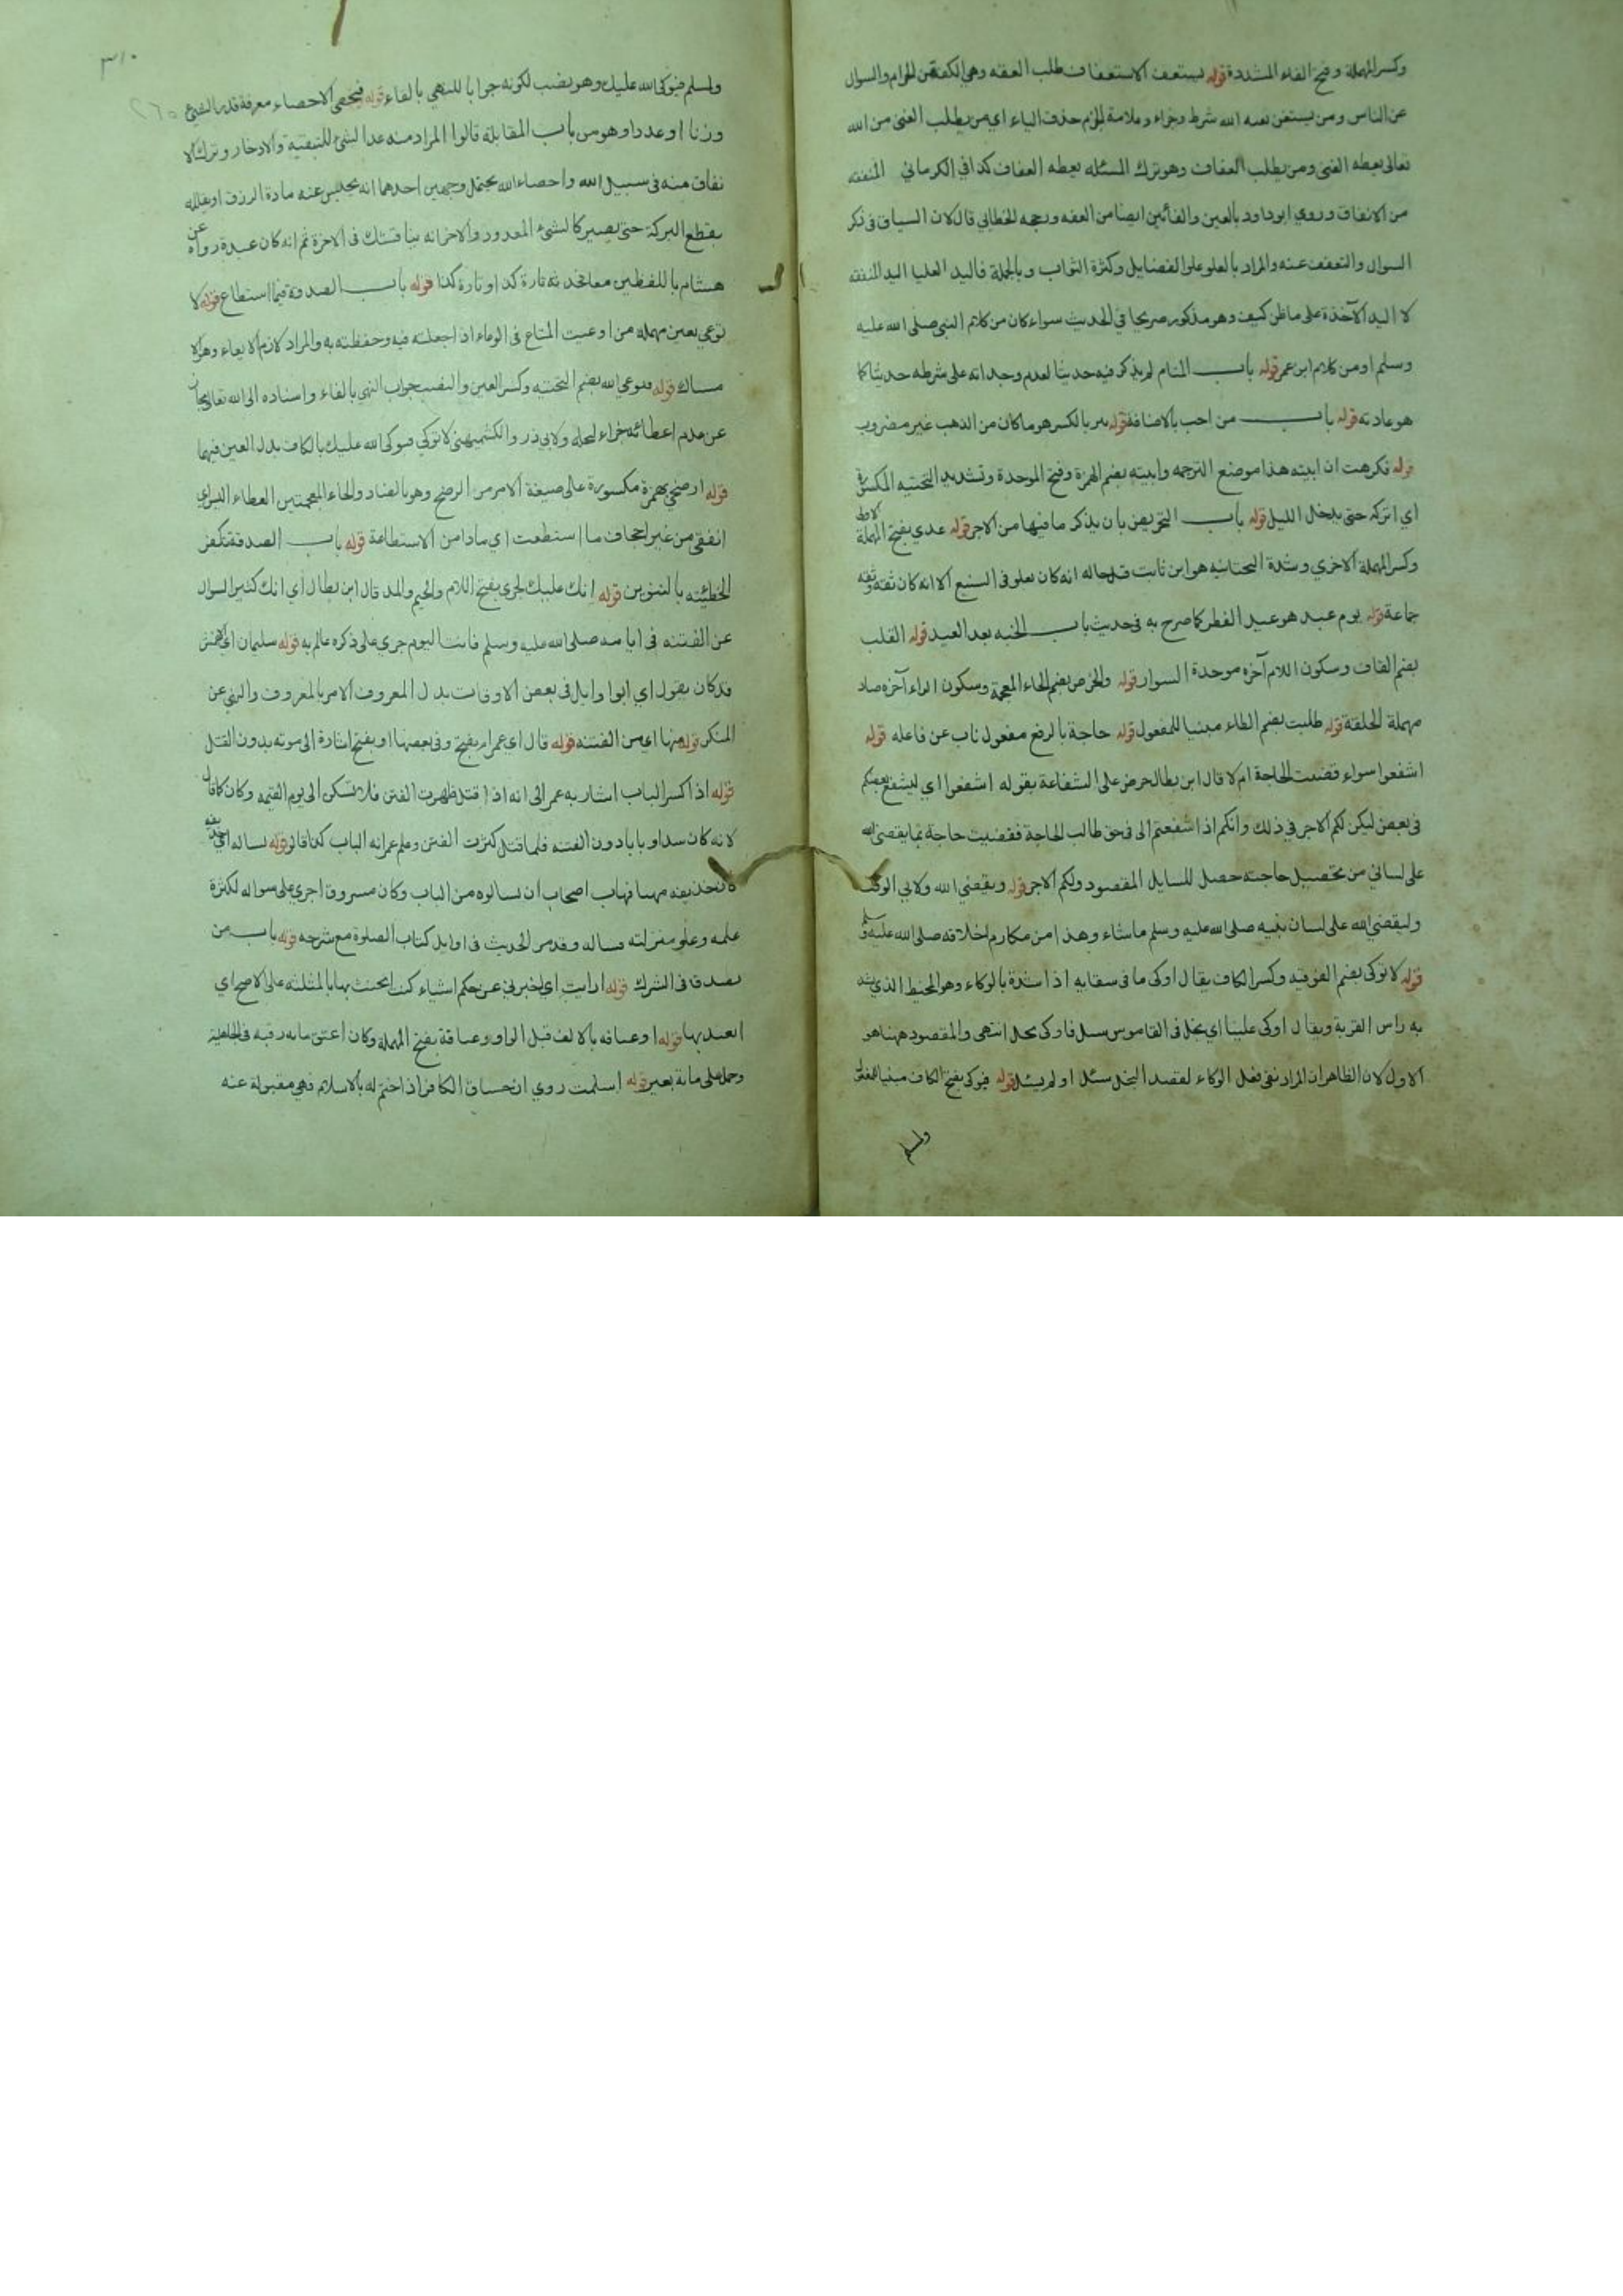 وكسر المهملة وفتح الفاء المشددة قوله يستعف الاستعفاف طلب العفة وهي الكف عن الحرام والسوال
عن الناس ومن يستغن يغنه الله شرط وجزاء وعلامة الجزم حذف الياء اي من يطلب الغنى من الله
تعالى يعطه الغنى ومن يطلب العفاف وهو ترك المسئله يعطه العفاف كذا في الكرماني المنفقه
من الانفاق وروي ابو داود بالعين والفائين ايضا من العفه ورجحه الخطابي قال لان السياق في ذكر
السوال والتعفف عنه والمراد بالعلو علو الفضايل وكثرة الثواب وبالجملة فاليد العليا اليد المنفقه
لا اليد الآخذة على ما ظن كيف وهو مذكور صريحا في الحديث سواء كان من كلام النبي صلى الله عليه
وسلم او من كلام ابن عمر قوله باب المنام لم يذكر فيه حديثا لعدم وجدانه على شرطه حديثا كما
هو عادته قوله باب من احب بالاضافة قوله تبر بالكسر هو ما كان من الذهب غير مضروب
قوله فكرهت ان ابيته هذا موضع الترجمه وابيته بضم الهمزة وفتح الموحدة وتشديد التحتيه المكسورة
اي اتركه حتى يدخل الليل قوله باب التحريض بان يذكر ما فيها من الاجر قوله عدي بفتح المهملة الاولى
وكسر المهملة الاخري وشدة التحتانيه هو ابن ثابت قال انه كان يغلو في التشيع الا انه كان ثقة وثقه
جماعة قوله يوم عيد هو عيد الفطر كما صرح به في حديث باب الخطبه بعد العيد قوله القلب
بضم القاف وسكون اللام آخره موحدة السوار قوله والخرص بضم الخاء المعجمة وسكون الراء آخره صاد
مهملة الحلقة قوله طلبت بضم الطاء مبنيا للمفعول قوله حاجة بالرفع مفعول ناب عن فاعله قوله
اشفعوا سواء قضيت الحاجة ام لا قال ابن بطال حرض على الشفاعة بقوله اشفعوا اي ليشفع بعضكم
في بعض ليكن لكم الاجر في ذلك وانكم اذا شفعتم الى في حق طالب الحاجة فقضيت حاجة بما يقضي الله
على لساني من تحصيل حاجته حصل للسايل المقصود ولكم الاجر قوله ويقضي الله ولابي الوقت
وليقضي الله على لسان نبيه صلى الله عليه وسلم ما شاء وهذا من مكارم اخلاقه صلى الله عليه وسلم
قوله لا توكي بضم الفوقيه وكسر الكاف يقال اوكى ما في سقايه اذا شدة بالوكاء وهو الخيط الذي يشد
به راس القربة ويقال اوكى علينا اي بخل في القاموس سيل فاوكى بخل انتهى والمقصود ههنا هو
الاول لان الظاهر ان المراد نفي فعل الوكاء لقصد البخل سئل او لم يسئل قوله فيوكي بفتح الكاف مبنيا للمفعول
ولمسلم
٣١٠
٢٦٥
ولمسلم فيوكي الله عليك وهو بنصب لكونه جوابا للنهي بالفاء قوله فيحصي الاحصاء معرفة قدر الشيء
وزنا او عددا وهو من باب المقابلة قالوا المراد منه عد الشئ للتبقية والادخار وترك الا
نفاق منه في سبيل الله واحصاء الله يحتمل وجهين احدهما انه يحبس عنه مادة الرزق او يقلله
بقطع البركة حتى يصير كالشيء المعدود والآخر انه يناقشك في الاخرة ثم انه كان عبدة رواه عن
هشام باللفظين معا تارة كذا وتارة كذا قوله باب الصدقة فيما استطاع قوله لا
توعي بعين مهمله من اوعيت المتاع في الوعاء اذا جعلته فيه وحفظته به والمراد لازم الايعاء وهو الا
مساك قوله فيوعي الله بضم التحتيه وكسر العين والنصب جواب النهي بالفاء واسناده الى الله تعالى مجاز
عن عدم اعطائه جزاء لبخله ولابي ذر والكشميهني لا توكي فيوكي الله عليك بالكاف بدل العين فيهما
قوله ارضخي بهمزة مكسورة على صيغة الامر من الرضخ وهو بالضاد والخاء المعجمتين العطاء اليسير اي
انفقي من غير اجحاف ما استطعت اي ما دامن الاستطاعة قوله باب الصدقة تكفر
الخطيئته بالتنوين قوله انك عليك لجري بفتح اللام والجيم والمد قال ابن بطال اي انك كثير السوال
عن الفتنه في ايامه صلى الله عليه وسلم فانت اليوم جري على ذكره عالم به قوله سليمان اي الاعمش
قد كان يقول اي ابو وايل في بعض الاوقات بدل المعروف الامر بالمعروف والنهي عن
المنكر قوله منها اي من الفتنه قوله قال اي عمر ام يفتح وفي بعضها او يفتح اشارة الى موته بدون القتل
قوله اذا كسر الباب اشار به عمر الى انه اذا قتل ظهرت الفتن فلا تسكن الى يوم القيمه وكان كما قال
لانه كان سدا وبابا دون الفتنه فلما قتل كثرت الفتن وعلم عمر انه الباب كذا قالوا قوله نساله اي حذيفه
كان حذيفه مهيبا فهاب اصحابه ان يسالوه من الباب وكان مسروق اجري على سواله لكثرة
علمه وعلو منزلته فساله وقد مر الحديث في اوايل كتاب الصلوة مع شرحه قوله باب من
تصدق في الشرك قوله ارايت اي اخبرني عن حكم اشياء كنت اتحنث بها بالمثلثه على الاصح اي
اتعبد بها قوله او عتاقه بالالف قبل الواو وعتاقة بفتح المهملة وكان اعتق مايه رقبه في الجاهلية
وحمل على ماية بعير قوله اسلمت روي ان حسنات الكافر اذا ختم له بالاسلام فهي مقبولة عنه